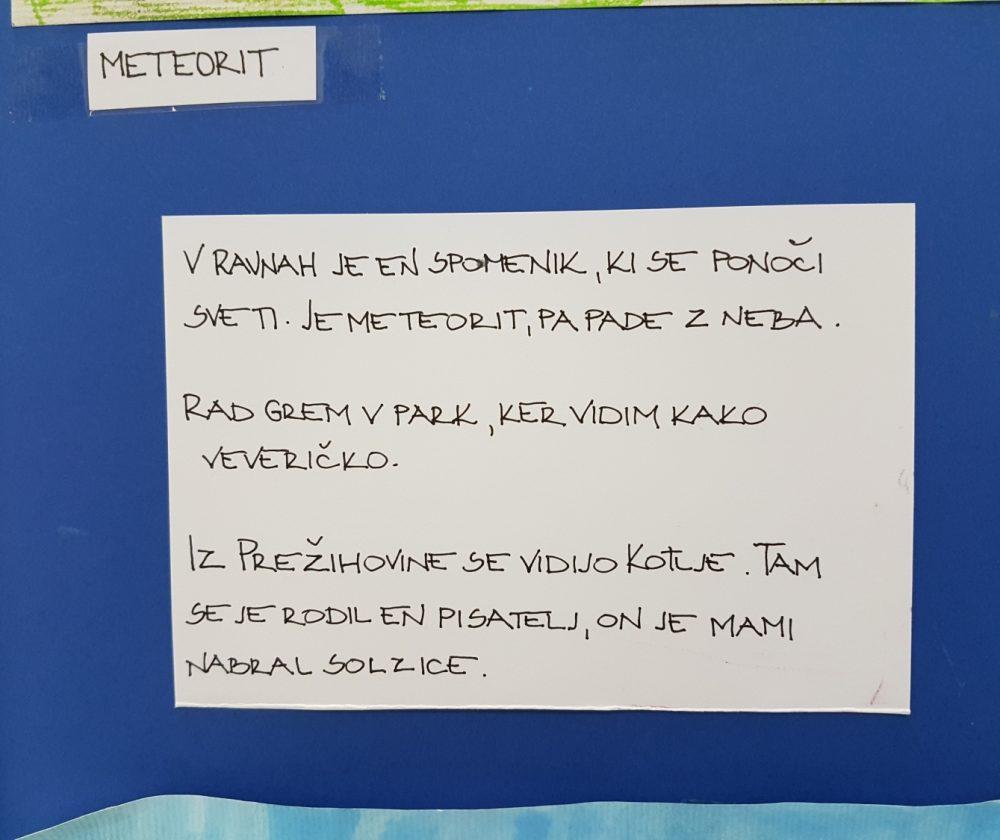 METEORIT
V RAVNAH JE EN SPOMENIK, KI SE PONOČI
SVETI. JE METEORIT, PA PADE Z NEBA.
RAD GREM V PARK, KER VIDIM KAKO
VEVERIČKO.
IZ PREŽIHOVINE SE VIDIJO KOTLJE. TAM
SE JE RODIL EN PISATELJ, ON JE MAMI
NABRAL SOLZICE.